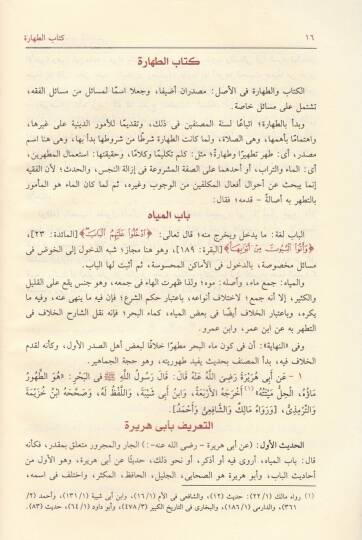 ١٦ كتاب الطهارة
كتاب الطهارة
الكتاب والطهارة فى الأصل: مصدران أضيفا، وجعلا اسمًا لمسائل من مسائل الفقه،
تشتمل على مسائل خاصة.
وبدأ بالطهارة؛ اتباعًا لسنة المصنفين فى ذلك، وتقديمًا للأمور الدينية على غيرها،
واهتمامًا بأهمها، وهى الصلاة، ولما كانت الطهارة شرطًا من شروطها بدأ بها، وهى هنا اسم
مصدر، أى: طهر تطهيرًا وطهارةً؛ مثل: كلم تكليمًا وكلامًا، وحقيقتها: استعمال المطهرين،
أى: الماء والتراب، أو أحدهما على الصفة المشروعة فى إزالة النجس، والحدث؛ لأن الفقيه
إنما يبحث عن أحوال أفعال المكلفين من الوجوب وغيره، ثم لما كان الماء هو المأمور
بالتطهر به أصالةً – قدمه؛ فقال:
باب المياه
الباب لغة: ما يدخل ويخرج منه؛ قال تعالى: ﴿ادْخُلُوا عَلَيْهِمُ الْبَابَ﴾ [المائدة: ٢٣]،
﴿وَأْتُوا الْبُيُوتَ مِنْ أَبْوَابِهَا﴾ [البقرة: ١٨٩]، وهو هنا مجاز؛ شبه الدخول إلى الخوض فى
مسائل مخصوصة، بالدخول فى الأماكن المحسوسة، ثم أثبت لها الباب.
والمياه: جمع ماء، وأصله: موه؛ ولذا ظهرت الهاء فى جمعه، وهو جنس يقع على القليل
والكثير، إلا أنه جمع؛ لاختلاف أنواعه، باعتبار حكم الشرع؛ فإن فيه ما ينهى عنه، وفيه ما
يكره، وباعتبار الخلاف أيضًا فى بعض المياه، كماء البحر؛ فإنه نقل الشارح الخلاف فى
التطهر به عن ابن عمر، وابن عمرو.
وفى «النهاية»: أن فى كون ماء البحر مطهرًا خلافًا لبعض أهل الصدر الأول، وكأنه لقدم
الخلاف فيه، بدأ المصنف بحديث يفيد طهوريته، وهو حجة الجماهير.
١ – عَنِ أَبِى هُرَيْرَةَ رَضِىَ اللَّهُ عَنْهُ قَالَ: قَالَ رَسُولُ اللَّهِ ﷺ فِى الْبَحْرِ: «هُوَ الطَّهُورُ
مَاؤُهُ، الْحِلُّ مَيْتَتُهُ»(١) أَخْرَجَهُ الأَرْبَعَةُ، وَابْنُ أَبِى شَيْبَةَ، وَاللَّفْظُ لَهُ، وَصَحَّحَهُ ابْنُ خُزَيْمَةَ
وَالتِّرْمِذِىُّ، [وَرَوَاهُ مَالِكٌ وَالشَّافِعِىُّ وَأَحْمَدُ].
التعريف بأبى هريرة
الحديث الأول: (عن أبى هريرة – رضى الله عنه-:) الجار والمجرور متعلق بمقدر، فكأنه
قال: باب المياه، أروى فيه أو أذكر، أو نحو ذلك، حديثًا عن أبى هريرة، وهو الأول من
أحاديث الباب، وأبو هريرة هو الصحابى، الجليل، الحافظ، المكثر، واختلف فى اسمه،
(١) رواه مالك (١/ ٢٢): حديث (١٢)، والشافعى فى الأم (١/ ١٦)، وابن أبى شيبة (١/ ١٣١)، وأحمد (٢/
٣٦١)، والدارمى (١/ ١٨٦)، والبخارى فى التاريخ الكبير (٣/ ٤٧٨)، وأبو داود (١/ ٦٤)، حديث (٨٣).